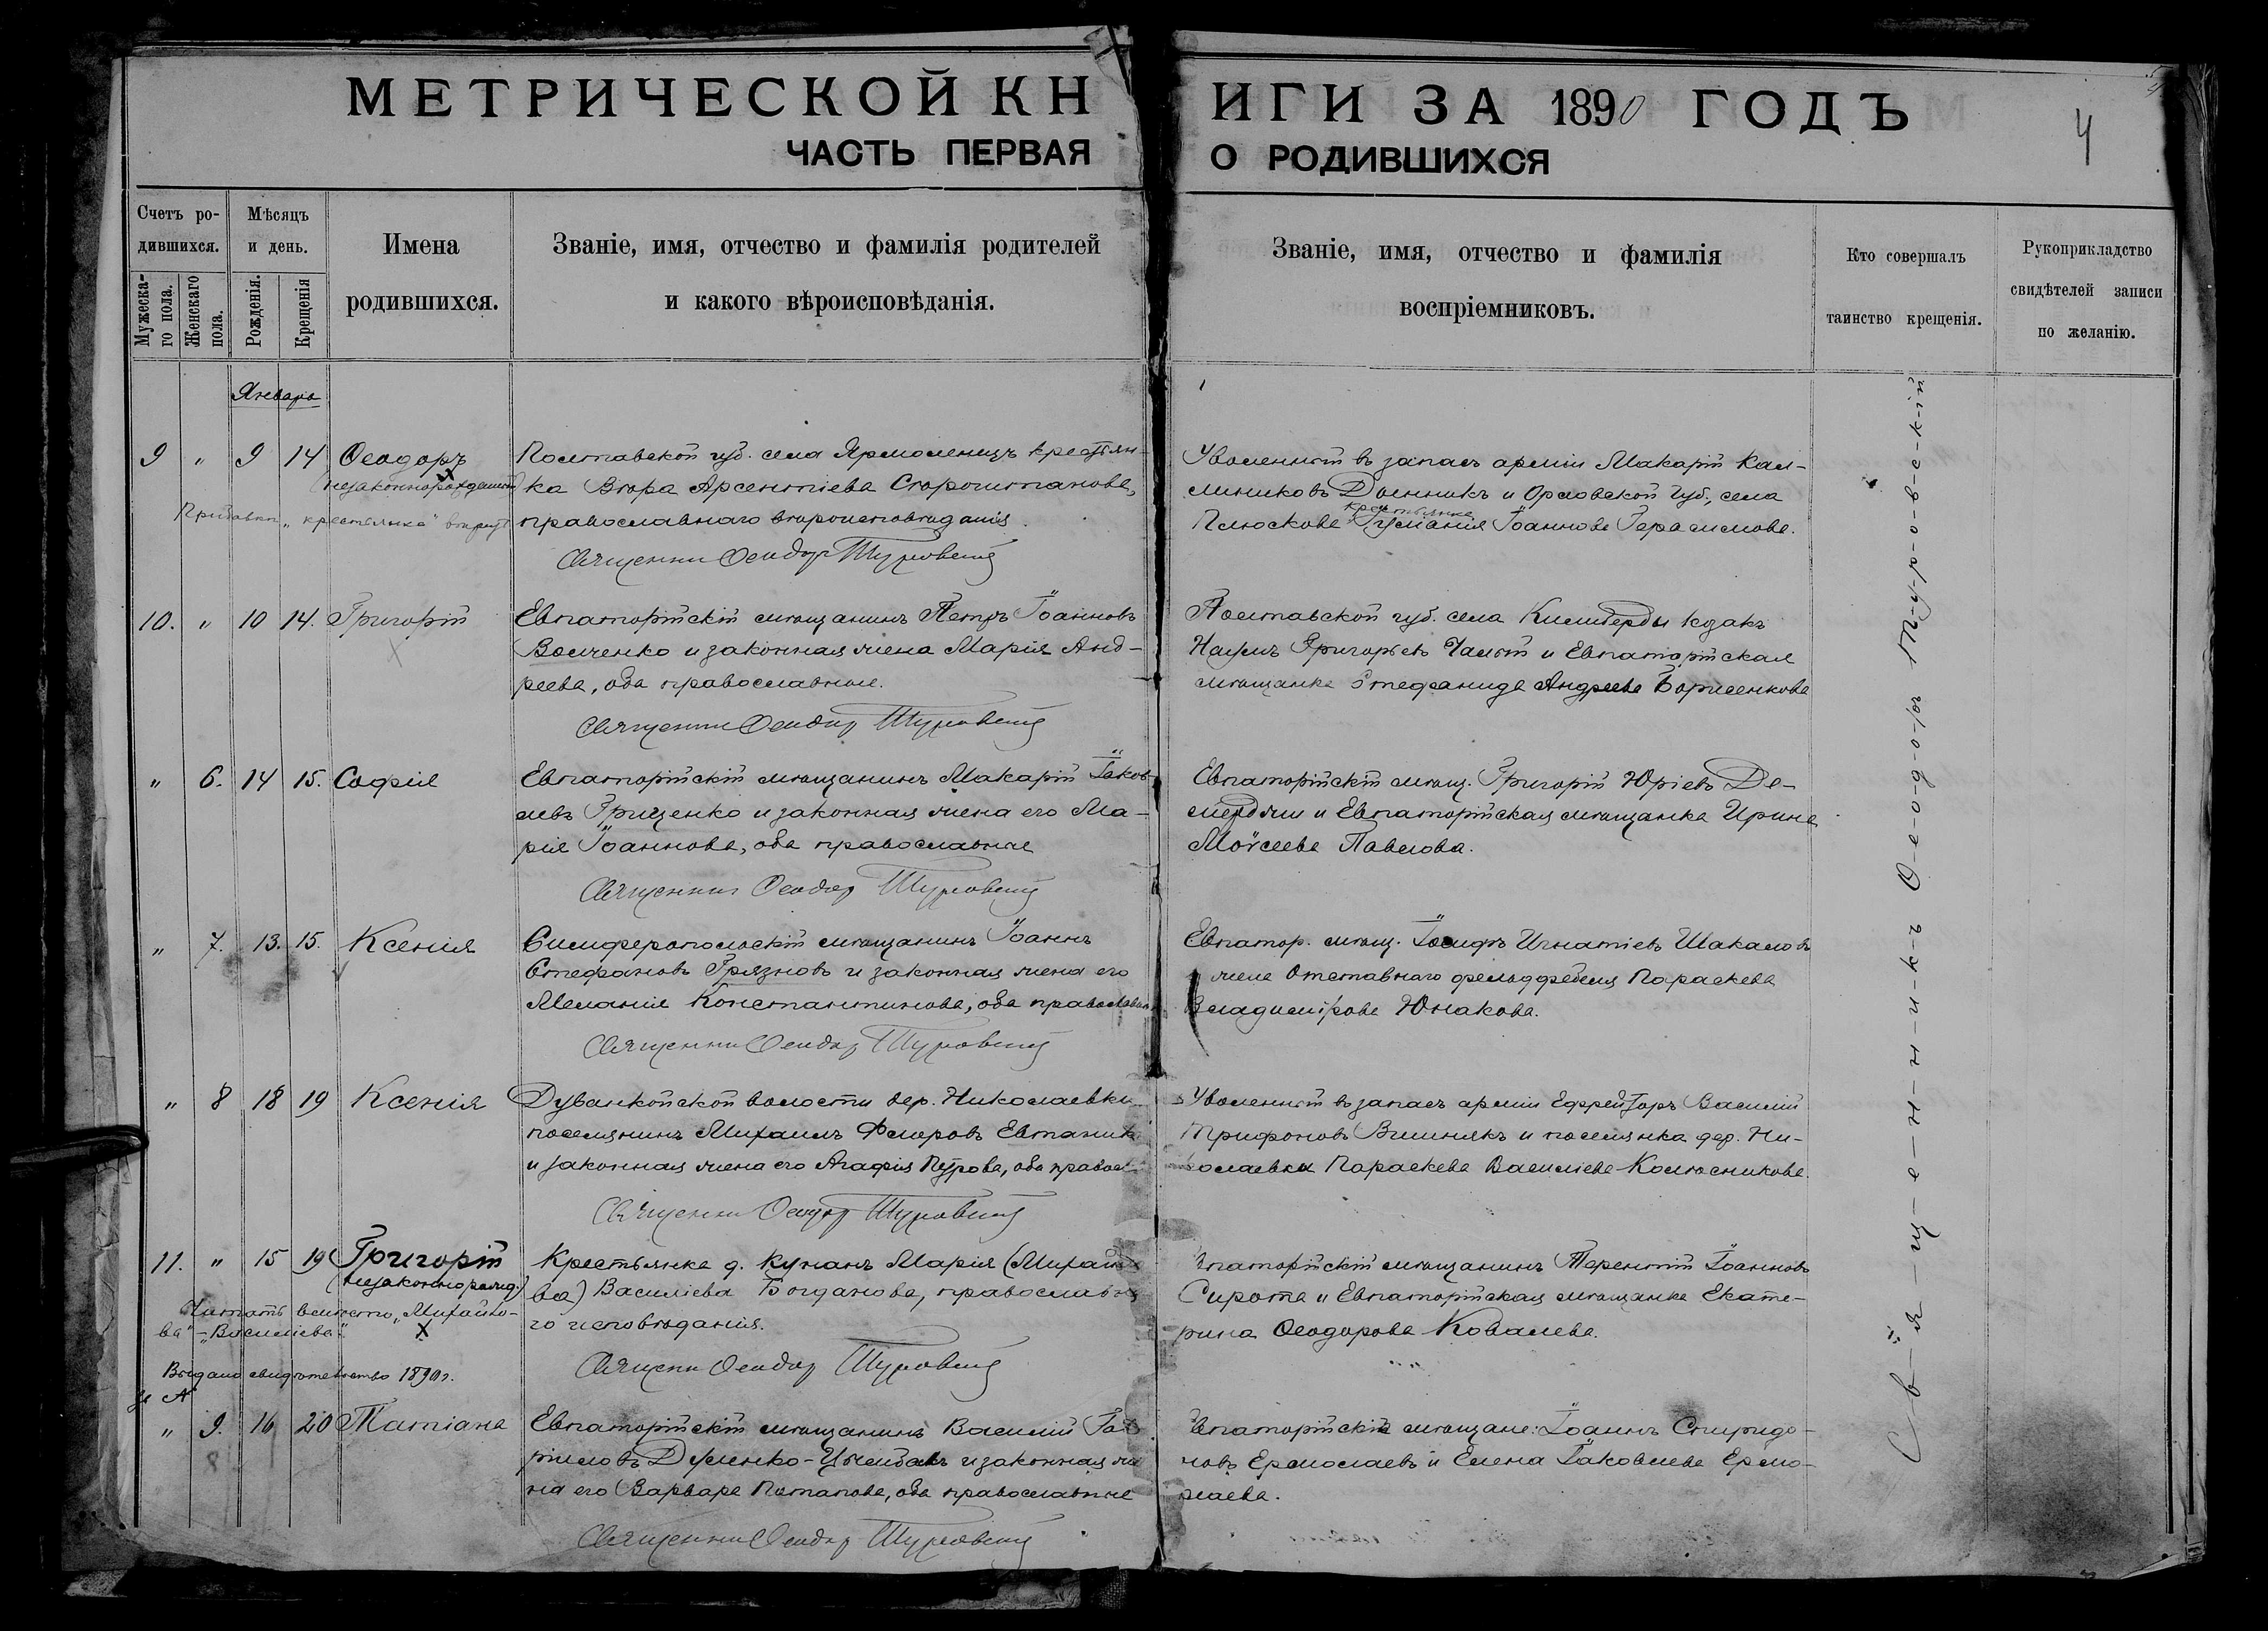 МЕТРИЧЕСКОЙ КНИГИ ЗА 1890 ГОДЪ
4
ЧАСТЬ ПЕРВАЯ О РОДИВШИХСЯ
Счетъ ро-
дившихся.
Мужеска-
го пола.
Женскаго
пола.
Мѣсяцъ
и день.
Рожденія.
Крещенія
Имена
родившихся.
Званіе, имя, отчество и фамилія родителей
и какого вѣроисповѣданія.
Званіе, имя, отчество и фамилія
воспріемниковъ.
Кто совершалъ
таинство крещенія.
Рукоприкладство
свидѣтелей записи
по желанію.
Января
9 " 9 14 Ѳеодоръ
(незаконнорожденный)
Полтавской губ. села Ярмоленецъ крестьян-
ка Вѣра Арсентіева Сторочистанова,
православнаго вѣроисповѣданія.
Священник Ѳеодор Туровскій
Уволенный въ запасъ арміи Макарій Кал-
линиковъ Доенникъ и Орловской губ., села
крестьянка
Плюскова Іоаннова Герасимова.
10. " 10 14. Григорій
Евпаторійскій мѣщанинъ Петръ Іоанновъ
Волченко и законная жена Марія Анд-
реева, оба православные.
Священник Ѳеодор Туровскій
Полтавской губ. села козакъ
Наумъ Григорьевъ Чалый и Евпаторійская
мѣщанка Стефанида Андреева Борисенкова
" 6. 14 15. Софія
Евпаторійскій мѣщанинъ Макарій Іаков-
левъ Гриценко и законная жена его Ма-
рія Іоаннова, оба православные
Священник Ѳеодор Туровскій
Евпаторійскій мѣщ. Григорій Юріевъ Де-
мерджи и Евпаторійская мѣщанка Ирина
Моѵсеева Павлова.
" 7. 13. 15. Ксенія
Симферопольскій мѣщанинъ Іоаннъ
Стефановъ Грязновъ и законная жена его
Меланія Константинова, оба православн.
Священник Ѳеодор Туровскій
Евпатор. мѣщ. Іосифъ Игнатіевъ Шакаловъ
и жена Отставнаго фельдфебеля Параскева
Владимірова Юнакова.
" 8 18 19 Ксенія
Дуванкойской волости дер. Николаевки
поселянинъ Михаилъ Флоровъ
и законная жена его Агафія Петрова, оба правосл.
Священник Ѳеодор Туровскій
Уволенный въ запасъ арміи Ефрейторъ Василій
Трифоновъ Вишнякъ и поселянка дер. Ни-
колаевки Параскева Василіева Колесникова.
11. " 15 19 Григорій
(незаконнорожд.)
Читать вмѣсто „Михайло-
ва" - „Василіева."
Выдано свидѣтельство 1890 г.
Крестьянка д. Кунанъ Марія (Михайло-
ва) Василіева Богданова, православна-
го исповѣданія.
Священ Ѳеодор Туровскій
Евпаторійскій мѣщанинъ Терентій Іоанновъ
Сирота и Евпаторійская мѣщанка Екате-
рина Ѳеодорова Ковалева.
" 9. 16 20 Татіана
Евпаторійскій мѣщанинъ Василій Гав-
риловъ Дуденко-Цымбалъ и законная же-
на его Варвара Потапова, оба православные
Священник Ѳеодор Туровскій
Евпаторійскіе мѣщане: Іоаннъ Спиридо-
новъ Ермолаевъ и Елена Іаковлева Ермо-
лаева.
С-в-я-щ-е-н-н-и-к-ъ Ѳ-е-о-д-о-р-ъ Т-у-р-о-в-с-к-ій